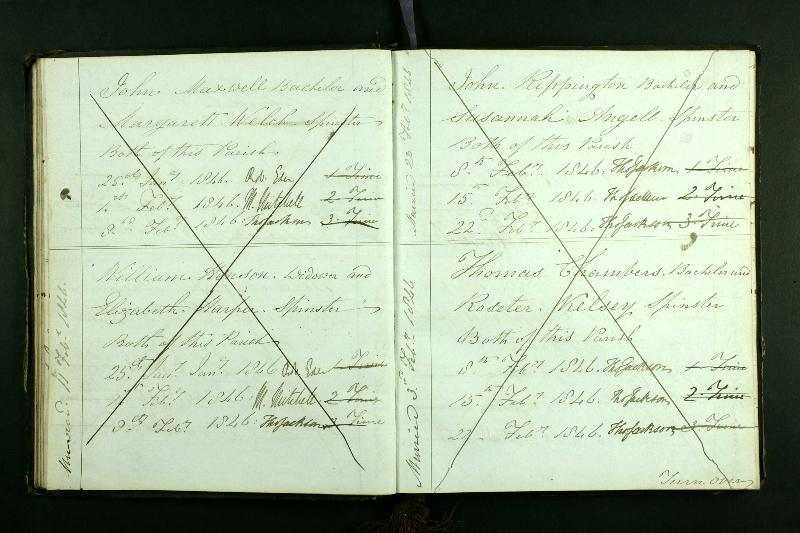 John Maxwell Bachelor and
Margarett Welch Spinster
Both of this Parish
25th Jany 1846. Rob. Eden 1 Time
1st Feby 1846 M. Mitchell 2 Time
8th Feby 1846 Thos Jackson 3 Time
William Benson. Widower and
Elizabeth Harper Spinster
Both of this Parish
25th Jany 1846 Rob. Eden 1 Time
1st Feby 1846. M. Mitchell 2 Time
8th Feby 1846. Thos Jackson 3 Time
Married 11th Feby 1846.
John Rippington Bachelor and
Susannah Angell Spinster
Both of this Parish
8th Feby 1846. Thos Jackson 1 Time
15th Feby 1846. Thos Jackson 2 Time
22d Feby 1846. Thos Jackson 3 Time
Married 23 Feby 1846
Thomas Chambers. Bachelor and
Roseter. Kelsey Spinster
Both of this Parish
8th Feby 1846. Thos Jackson 1 Time
15th Feby 1846. Thos Jackson 2 Time
22 Feby 1846. Thos Jackson 3 Time
Married Feby 1846
Turn over